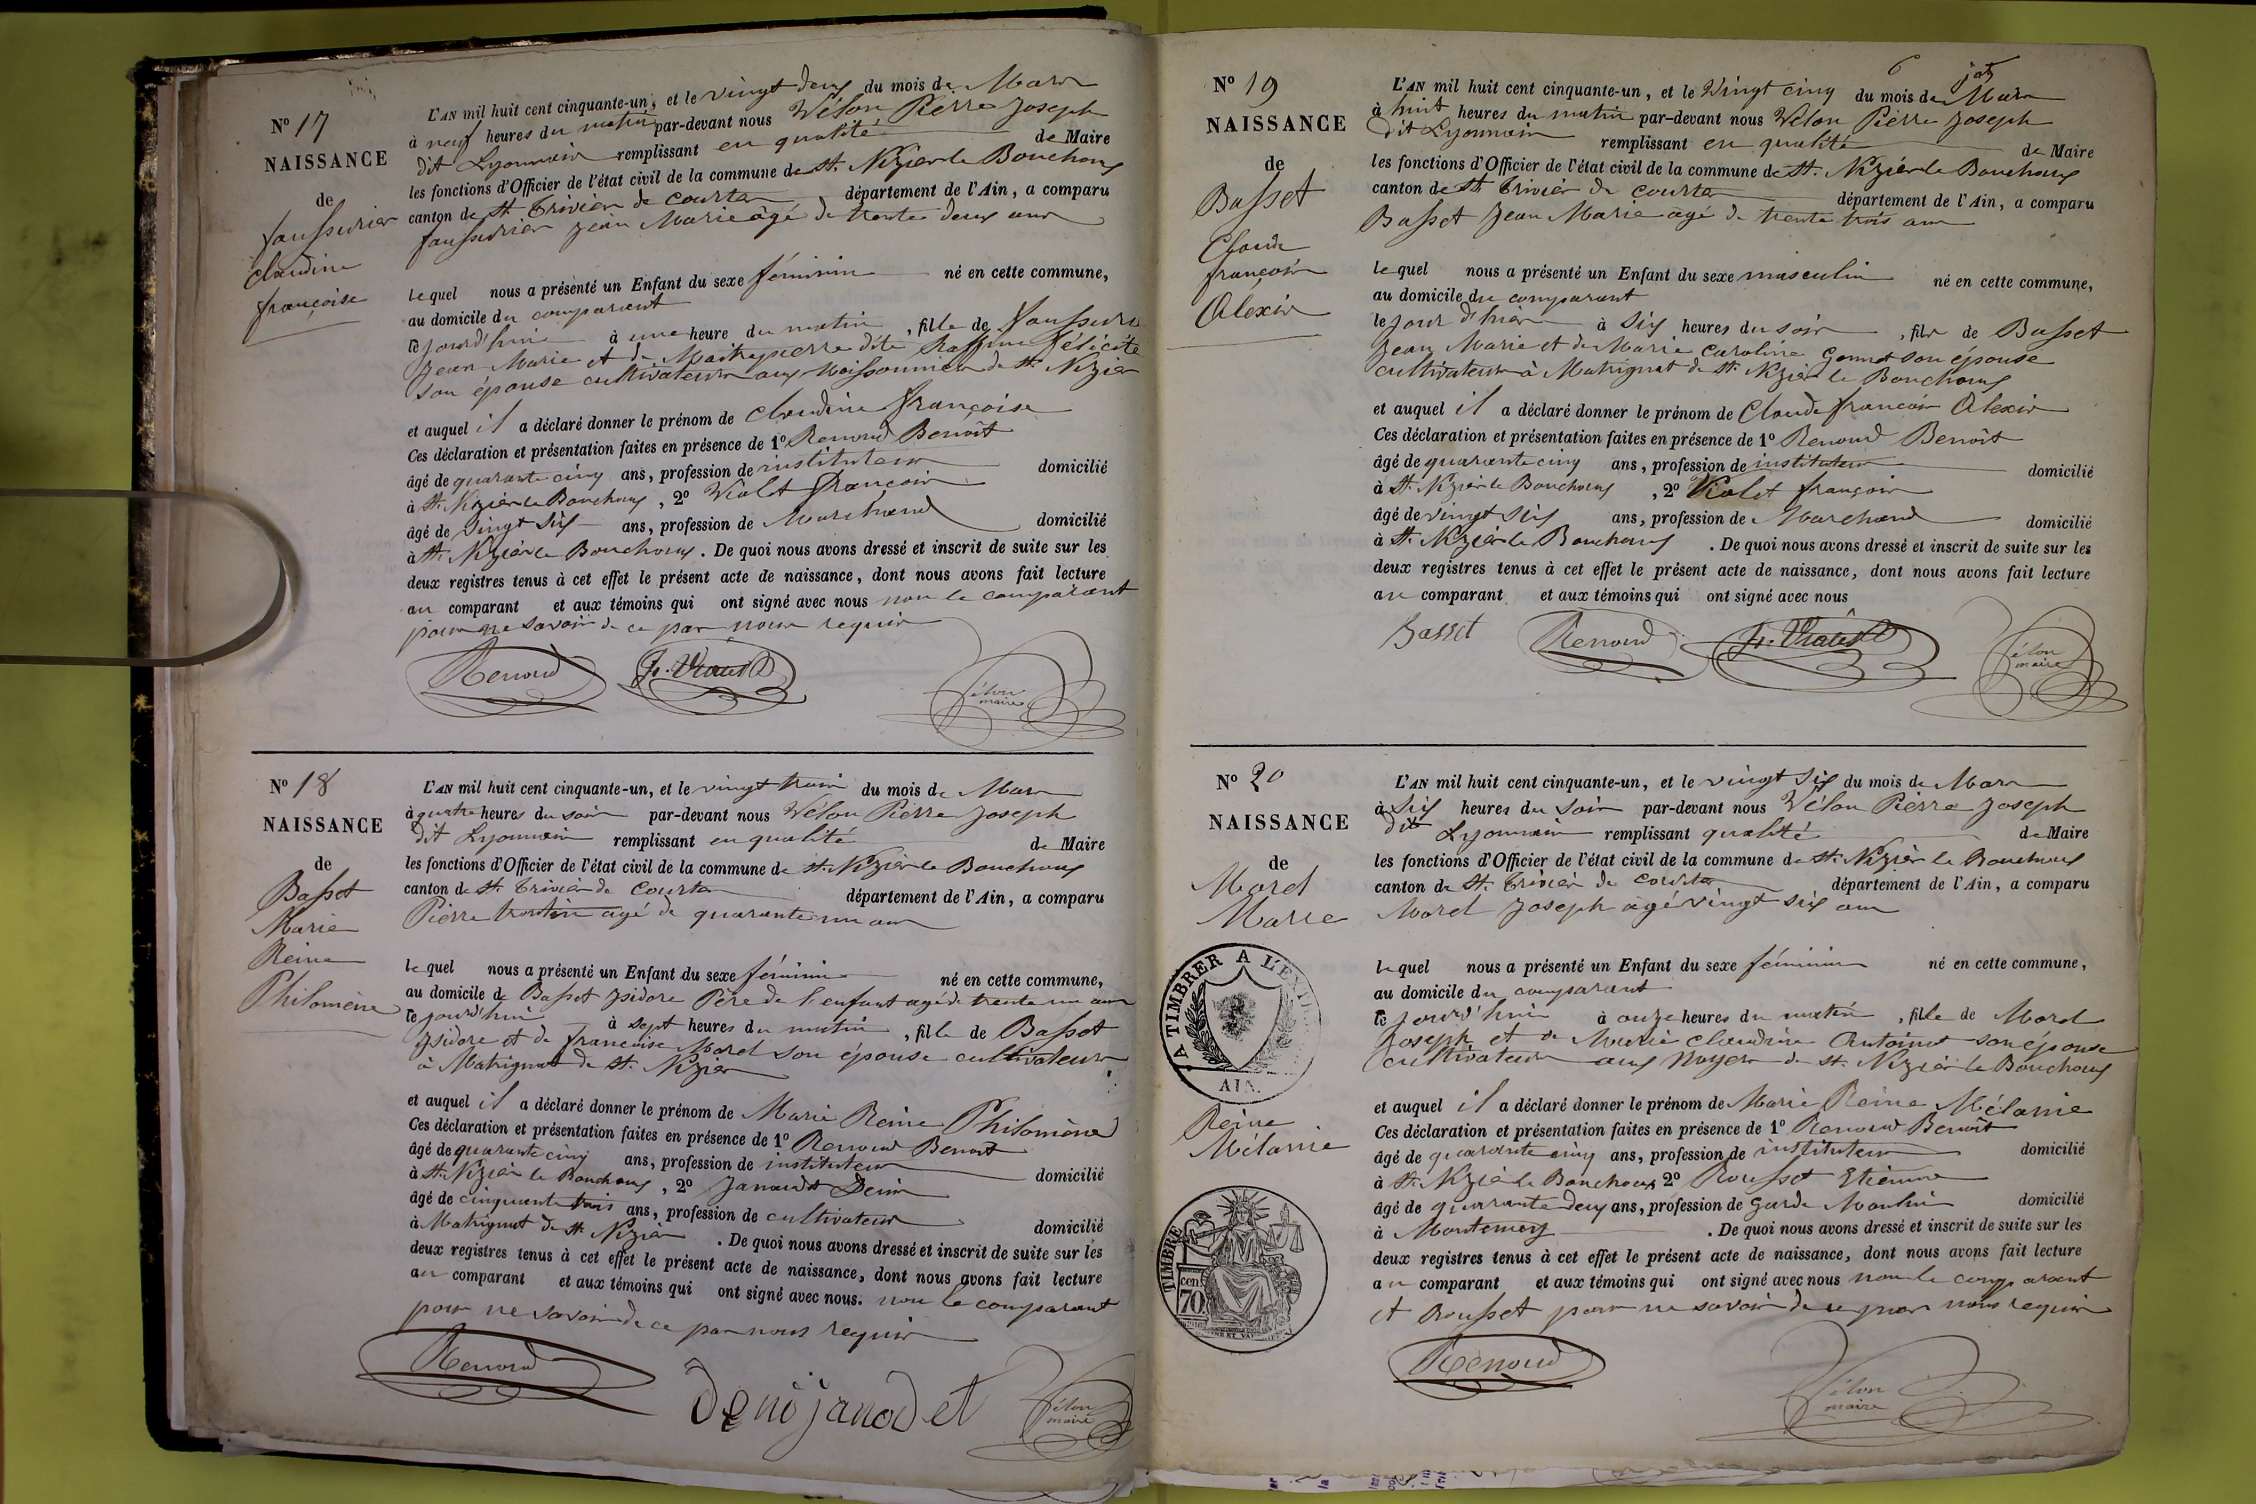 N° 17
NAISSANCE
de
faussurier
claudine
françoise
L'AN mil huit cent cinquante-un, et le vingt deux du mois de Mars
à neuf heures du matin par-devant nous Vélon Pierre Joseph
dit Lyonnais remplissant en qualité de Maire
les fonctions d'Officier de l'état civil de la commune de St. Nizier le Bouchoux
canton de St. Trivier de courtes département de l'Ain, a comparu
faussurier Jean Marie âgé de trente deux ans
lequel nous a présenté un Enfant du sexe féminin né en cette commune,
au domicile du comparant
le jourd'hui à une heure du matin, fille de faussurier
Jean Marie et de Maitrepierre dite Félicité
son épouse cultivateurs aux de St. Nizier
et auquel il a déclaré donner le prénom de claudine françoise
Ces déclaration et présentation faites en présence de 1° Renoud Benoît
âgé de quarante cinq ans, profession de instituteur domicilié
à St. Nizier le Bouchoux, 2° Violet françois
âgé de vingt six ans, profession de Marchand domicilié
à St. Nizier le Bouchoux. De quoi nous avons dressé et inscrit de suite sur les
deux registres tenus à cet effet le présent acte de naissance, dont nous avons fait lecture
au comparant et aux témoins qui ont signé avec nous non le comparant
pour ne savoir de ce par nous requis
Renoud fr. Violet Vélon
maire
N° 18
NAISSANCE
de
Basset
Marie
Reine
Philomène
L'AN mil huit cent cinquante-un, et le vingt trois du mois de Mars
à quatre heures du soir par-devant nous Vélon Pierre Joseph
dit Lyonnais remplissant en qualité de Maire
les fonctions d'Officier de l'état civil de la commune de St. Nizier le Bouchoux
canton de St. Trivier de Courtes département de l'Ain, a comparu
Pierre agé de quarante un ans
lequel nous a présenté un Enfant du sexe féminin né en cette commune,
au domicile de Basset Isidore Père de l'enfant agé de trente un ans
le jourd'hui à sept heures du matin, fille de Basset
Isidore et de françoise Morel son épouse cultivateurs
à Matrignat de St. Nizier
et auquel il a déclaré donner le prénom de Marie Reine Philomène
Ces déclaration et présentation faites en présence de 1° Renoud Benoît
âgé de quarante cinq ans, profession de instituteur domicilié
à St. Nizier le Bouchoux, 2° Janaudet Denis
âgé de cinquante trois ans, profession de cultivateur domicilié
à Matrignat de St. Nizier. De quoi nous avons dressé et inscrit de suite sur les
deux registres tenus à cet effet le présent acte de naissance, dont nous avons fait lecture
au comparant et aux témoins qui ont signé avec nous. non le comparant
pour ne savoir de ce par nous requis
Renoud
Vélon
maire
6
N° 19
NAISSANCE
de
Basset
Claude
françois
Alexis
L'AN mil huit cent cinquante-un, et le Vingt cinq du mois de Mars
à huit heures du matin par-devant nous Vélon Pierre Joseph
dit Lyonnais remplissant en qualité de Maire
les fonctions d'Officier de l'état civil de la commune de St. Nizier le Bouchoux
canton de St. Trivier de courtes département de l'Ain, a comparu
Basset Jean Marie agé de trente trois ans
lequel nous a présenté un Enfant du sexe masculin né en cette commune,
au domicile du comparant
le jour d'hier à six heures du soir, fils de Basset
Jean Marie et de Marie Caroline Gonnet son épouse
cultivateurs à Matrignat de St. Nizier le Bouchoux
et auquel il a déclaré donner le prénom de Claude françois Alexis
Ces déclaration et présentation faites en présence de 1° Renoud Benoît
âgé de quarante cinq ans, profession de instituteur domicilié
à St. Nizier le Bouchoux, 2° Violet françois
âgé de vingt six ans, profession de Marchand domicilié
à St. Nizier le Bouchoux. De quoi nous avons dressé et inscrit de suite sur les
deux registres tenus à cet effet le présent acte de naissance, dont nous avons fait lecture
au comparant et aux témoins qui ont signé avec nous
Basset Renoud fr. Violet Vélon
maire
N° 20
NAISSANCE
de
Morel
Marie
A TIMBRER A L'EXTRA
AIN.
Reine
Mélanie
TIMBRE
cen
70
L'AN mil huit cent cinquante-un, et le vingt six du mois de Mars
à six heures du soir par-devant nous Vélon Pierre Joseph
dit Lyonnais remplissant qualité de Maire
les fonctions d'Officier de l'état civil de la commune de St. Nizier le Bouchoux
canton de St. Trivier de courtes département de l'Ain, a comparu
Morel Joseph agé vingt six ans
lequel nous a présenté un Enfant du sexe féminin né en cette commune,
au domicile du comparant
le jourd'hui à onze heures du matin, fille de Morel
Joseph et de Marie claudine Antoinet son épouse
cultivateurs aux Noyers de St. Nizier le Bouchoux
et auquel il a déclaré donner le prénom de Marie Reine Mélanie
Ces déclaration et présentation faites en présence de 1° Renoud Benoît
âgé de quarante cinq ans, profession de instituteur domicilié
à St. Nizier le Bouchoux 2° Rousset Etienne
âgé de quarante deux ans, profession de Garde Moulin domicilié
à Montemoz. De quoi nous avons dressé et inscrit de suite sur les
deux registres tenus à cet effet le présent acte de naissance, dont nous avons fait lecture
au comparant et aux témoins qui ont signé avec nous non le comparant
et Rousset pour ne savoir de ce par nous requis
Renoud Vélon
maire